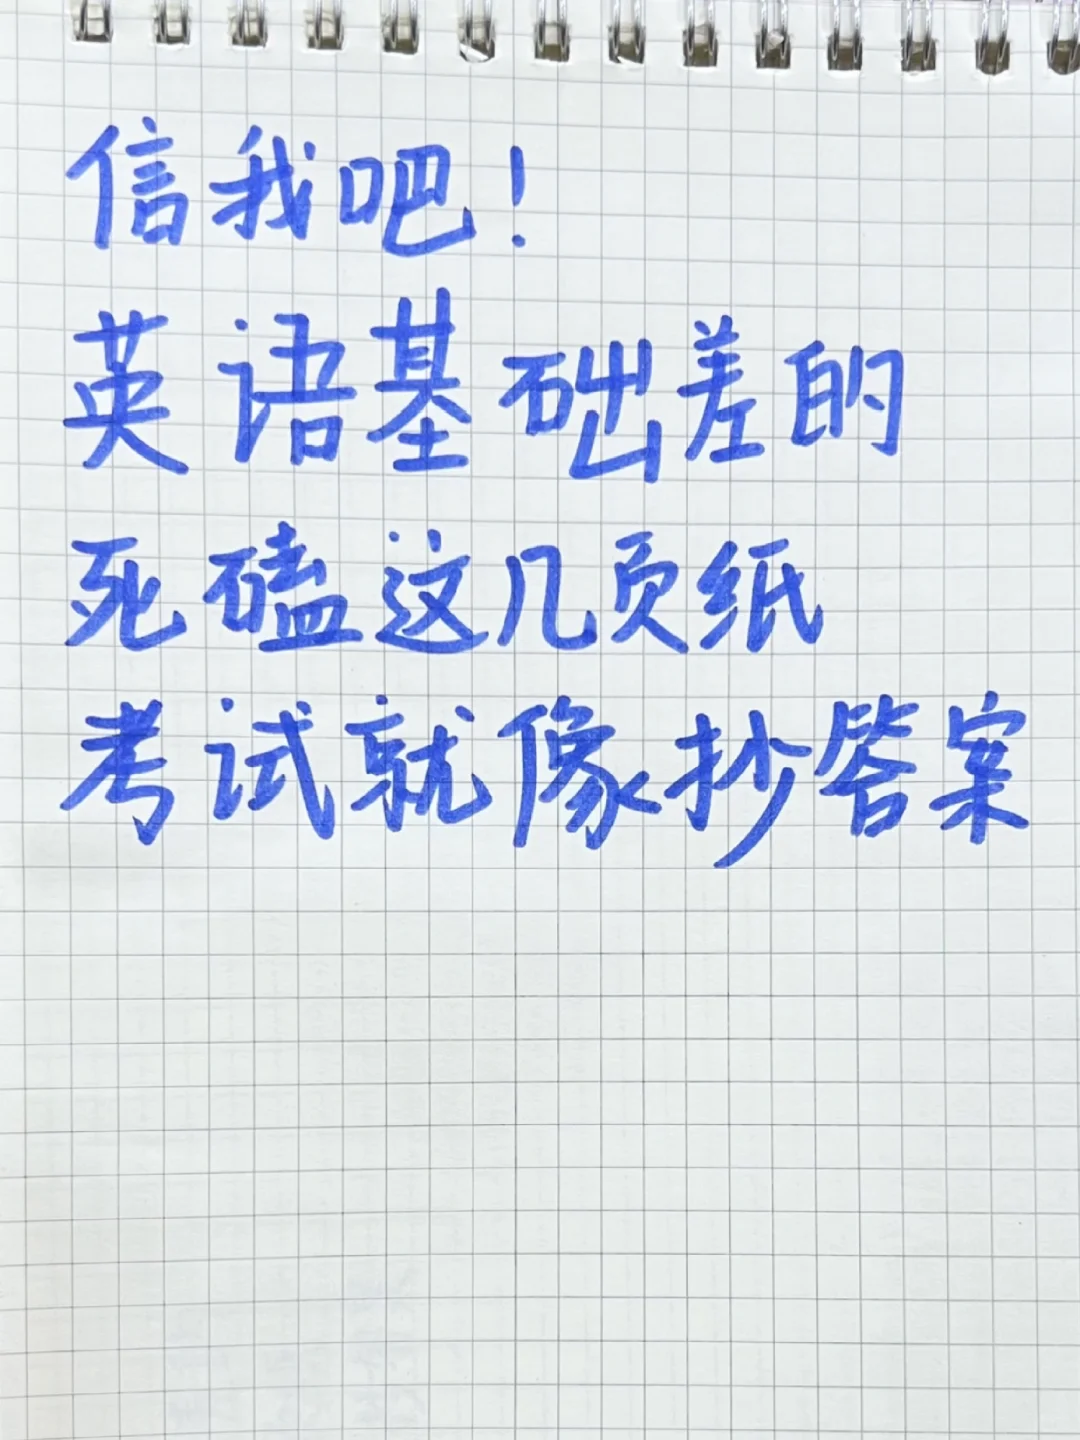 信我吧！
英语基础差的
死磕这几页纸
考试就像抄答案